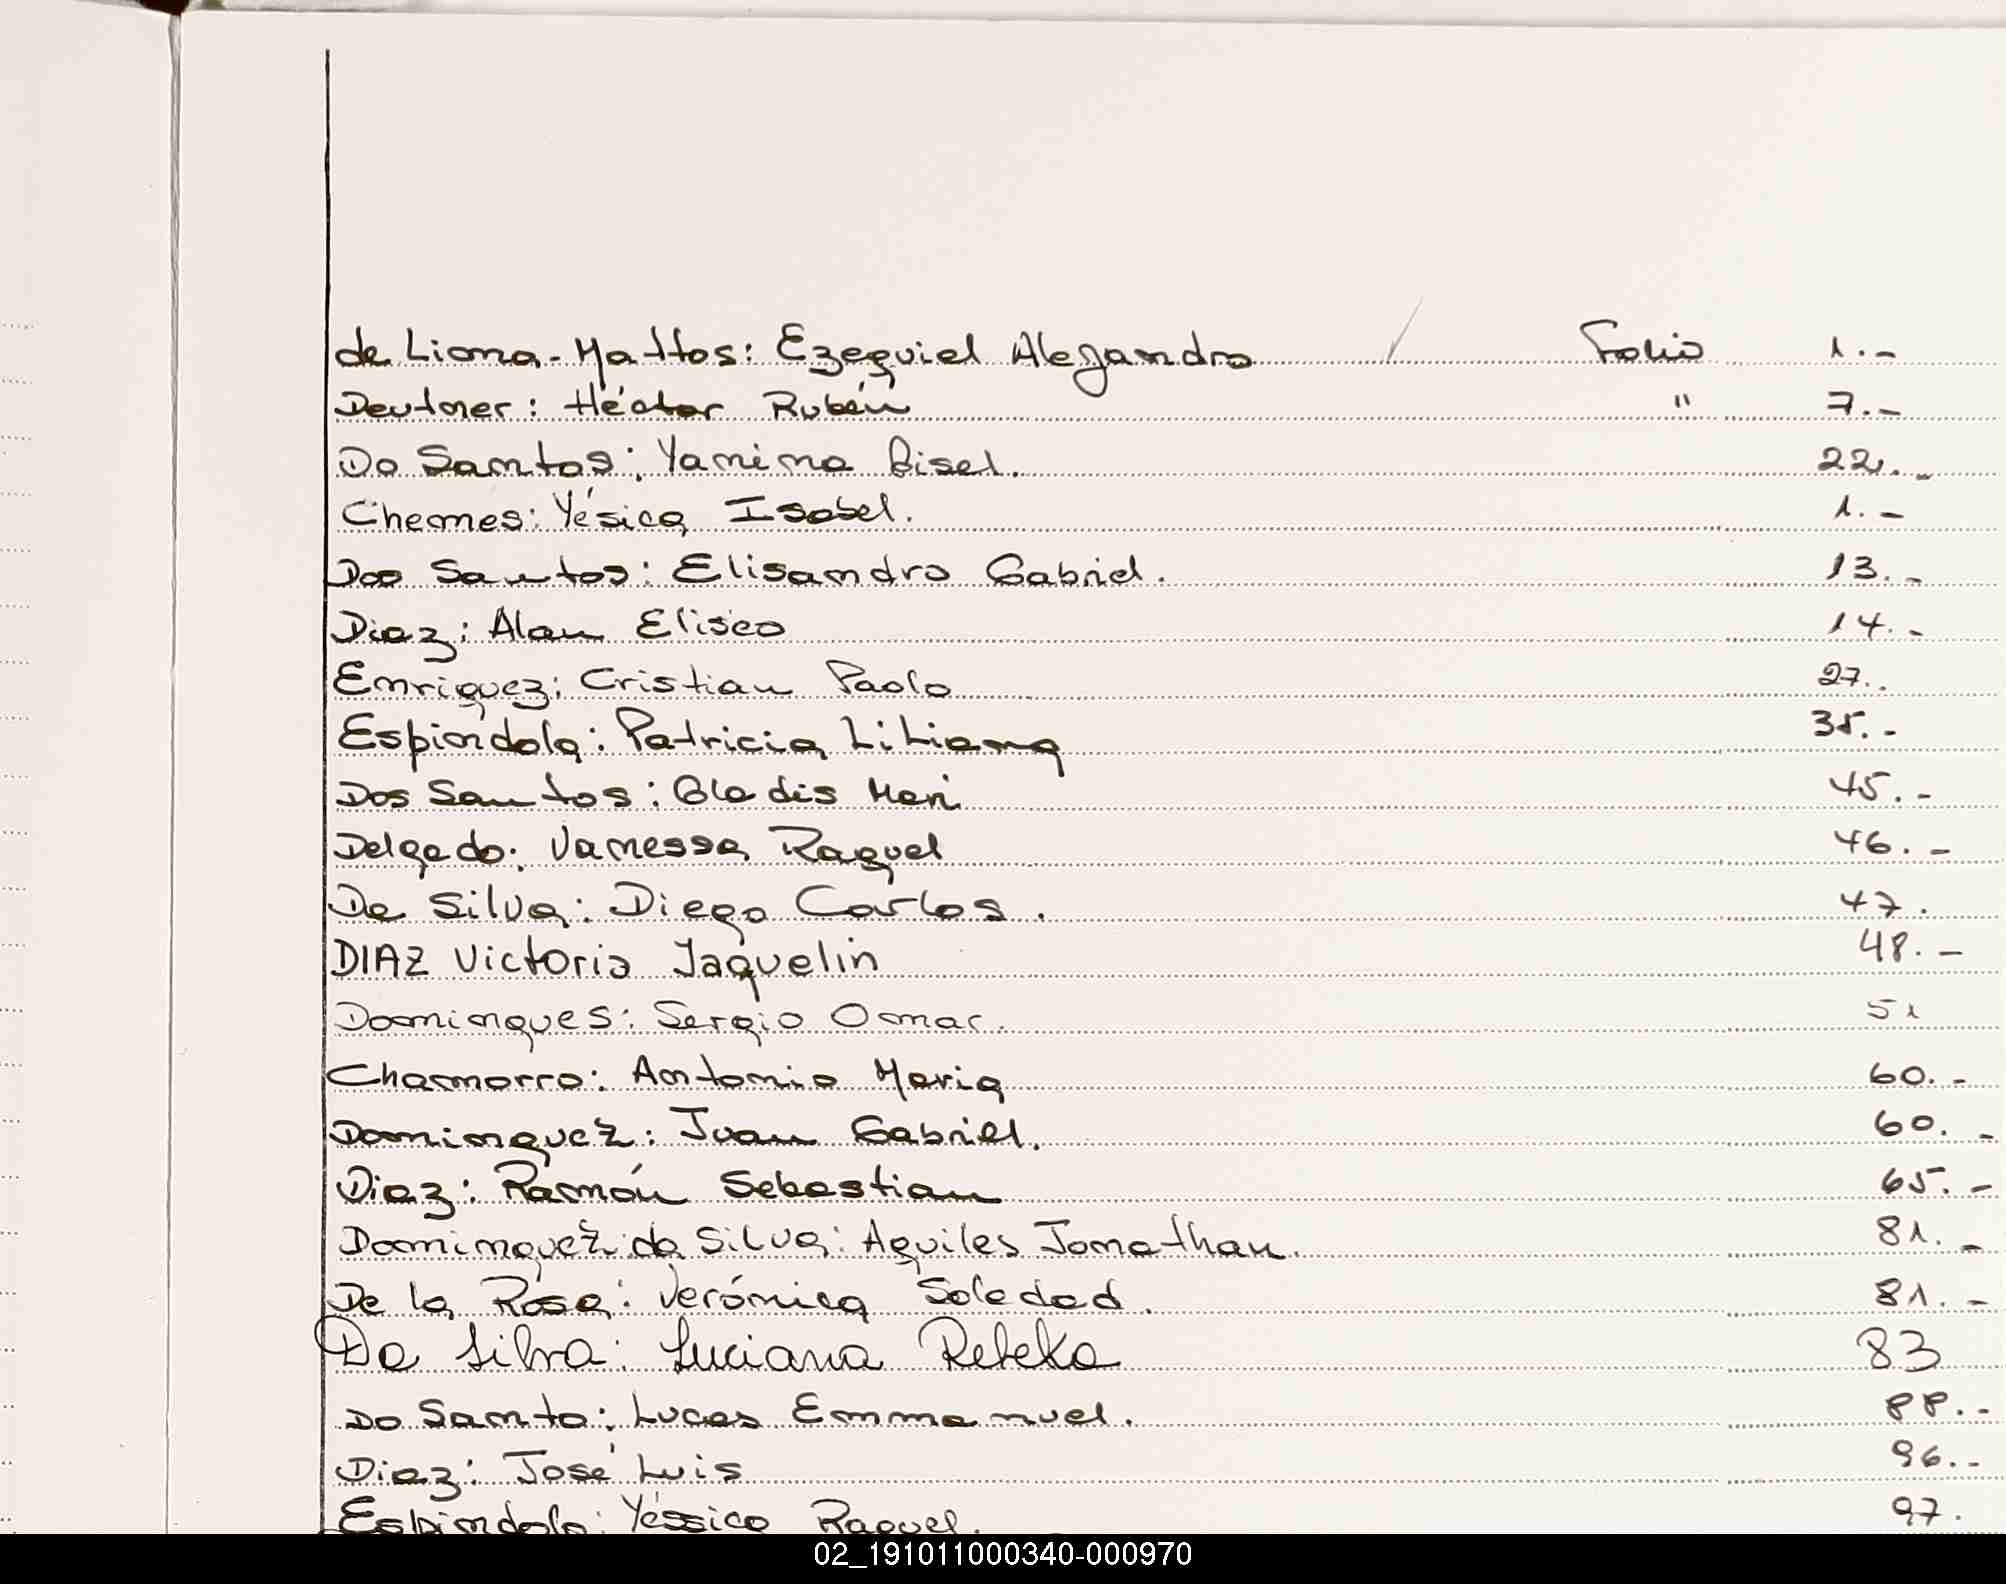 de Lima-Mattos: Ezequiel Alejandro / Folio 1.-
Deutner: Héctor Rubén " 7.-
Do Santos: Yanina Gisel. 22.-
Chemes: Yésica Isabel. 1.-
Dos Santos: Elisandro Gabriel. 13.-
Diaz: Alan Eliseo 14.-
Enriquez: Cristian Paolo 27..
Espíndola: Patricia Liliana 35.-
Dos Santos: Gladis Mari 45.-
Delgado: Vanessa Raquel 46.-
Da Silva: Diego Carlos. 47.
DIAZ Victoria Jaquelin 48.-
Domingues: Sergio Omar. 51
Chamorro: Antonio Maria 60.-
Dominguez: Juan Gabriel. 60.-
Diaz: Ramón Sebastian 65.-
Dominguez da Silva: Aquiles Jonathan. 81.-
De la Rosa: Verónica Soledad. 81.-
Da Silva: Luciana Rebeka 83
Do Santo: Lucas Emmanuel. 88.-
Diaz: José Luis 96.-
Espindola: Yéssica Raquel. 97.
02_191011000340-000970